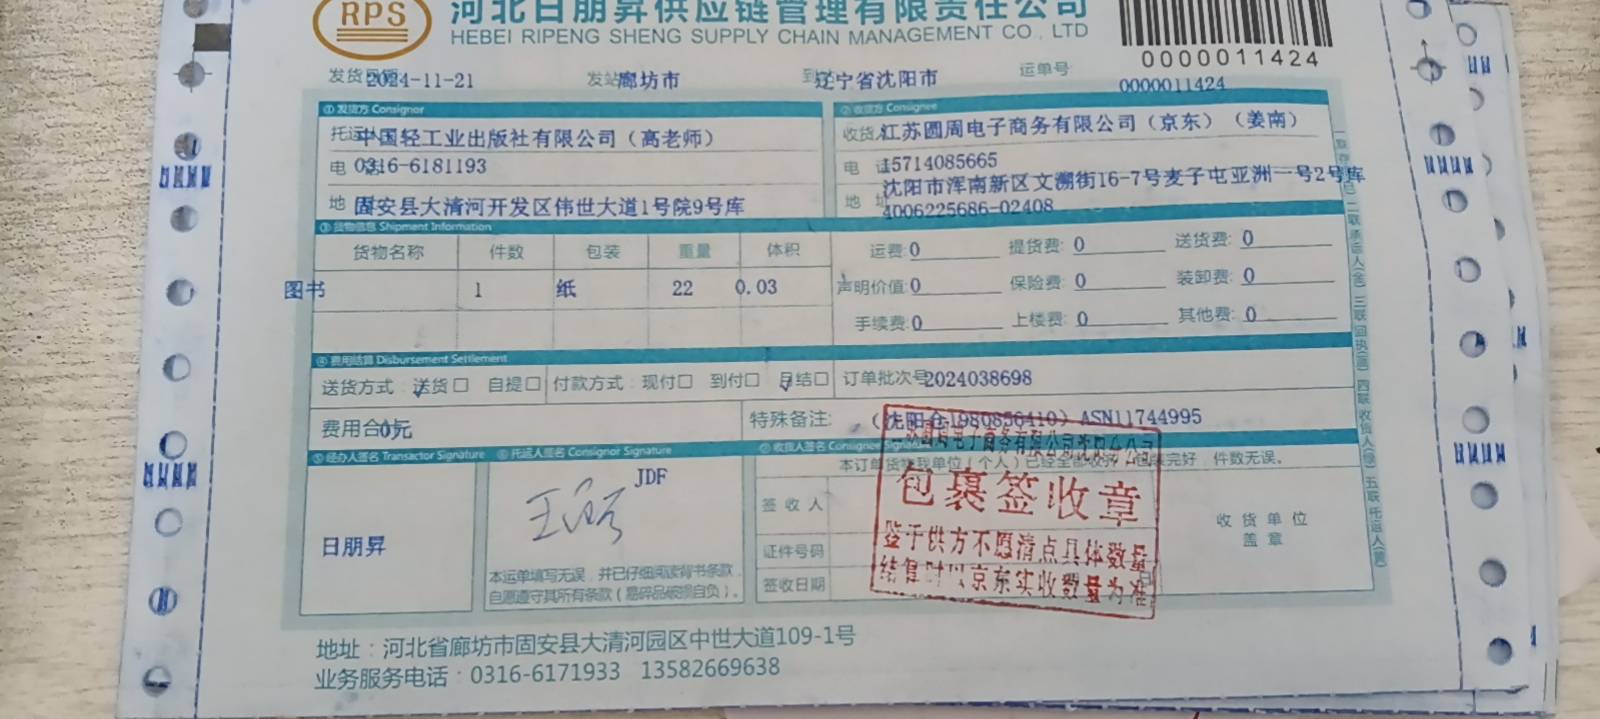 RPS
河北日朋昇供应链管理有限责任公司
HEBEI RIPENG SHENG SUPPLY CHAIN MANAGEMENT CO., LTD
0000011424
发货日期 2024-11-21 发站 廊坊市 到站 辽宁省沈阳市 运单号 0000011424
① 发货方 Consignor ② 收货方 Consignee
托运人 中国轻工业出版社有限公司（高老师） 收货人 江苏圆周电子商务有限公司（京东）（姜南）
电话 0316-6181193 电话 15714085665
地址 固安县大清河开发区伟世大道1号院9号库 地址 沈阳市浑南新区文溯街16-7号麦子屯亚洲一号2号库
4006225686-02408
③ 货物信息 Shipment Information
货物名称 件数 包装 重量 体积 运费:0 提货费: 0 送货费: 0
图书 1 纸 22 0.03 声明价值:0 保险费: 0 装卸费: 0
手续费:0 上楼费: 0 其他费: 0
④ 费用结算 Disbursement Settlement
送货方式：送货□ 自提□ 付款方式：现付□ 到付□ 月结□ 订单批次号 2024038698
费用合计 0元 特殊备注: （沈阳仓1980856410）ASN11744995
⑤ 经办人签名 Transactor Signature ⑥ 托运人签名 Consignor Signature ⑦ 收货人签名 Consignee
本订单货物我单位（个人）已经全部收到 完好，件数无误。
JDF
日朋昇
签收人
证件号码
签收日期
收货单位
盖章
包裹签收章
鉴于供方不愿清点具体数量
结算时以京东实收数量为准
本运单填写无误，并已仔细阅读背书条款，
自愿遵守其所有条款（易碎品破损自负）。
地址：河北省廊坊市固安县大清河园区中世大道109-1号
业务服务电话：0316-6171933 13582669638